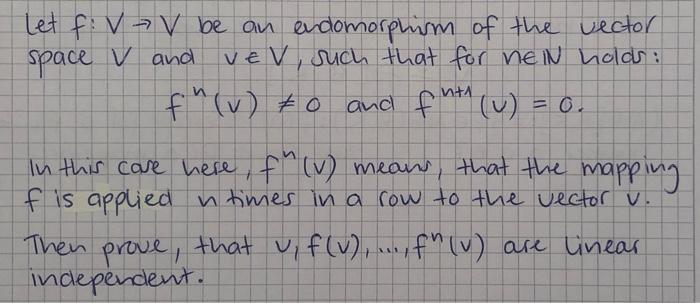 Let f: V → V be an endomorphism of the vector
space V and v ∈ V, such that for n ∈ ℕ holds:
fⁿ(v) ≠ 0 and fⁿ⁺¹(v) = 0.
In this case here, fⁿ(v) means, that the mapping
f is applied n times in a row to the vector v.
Then prove, that v, f(v), ..., fⁿ(v) are linear
independent.